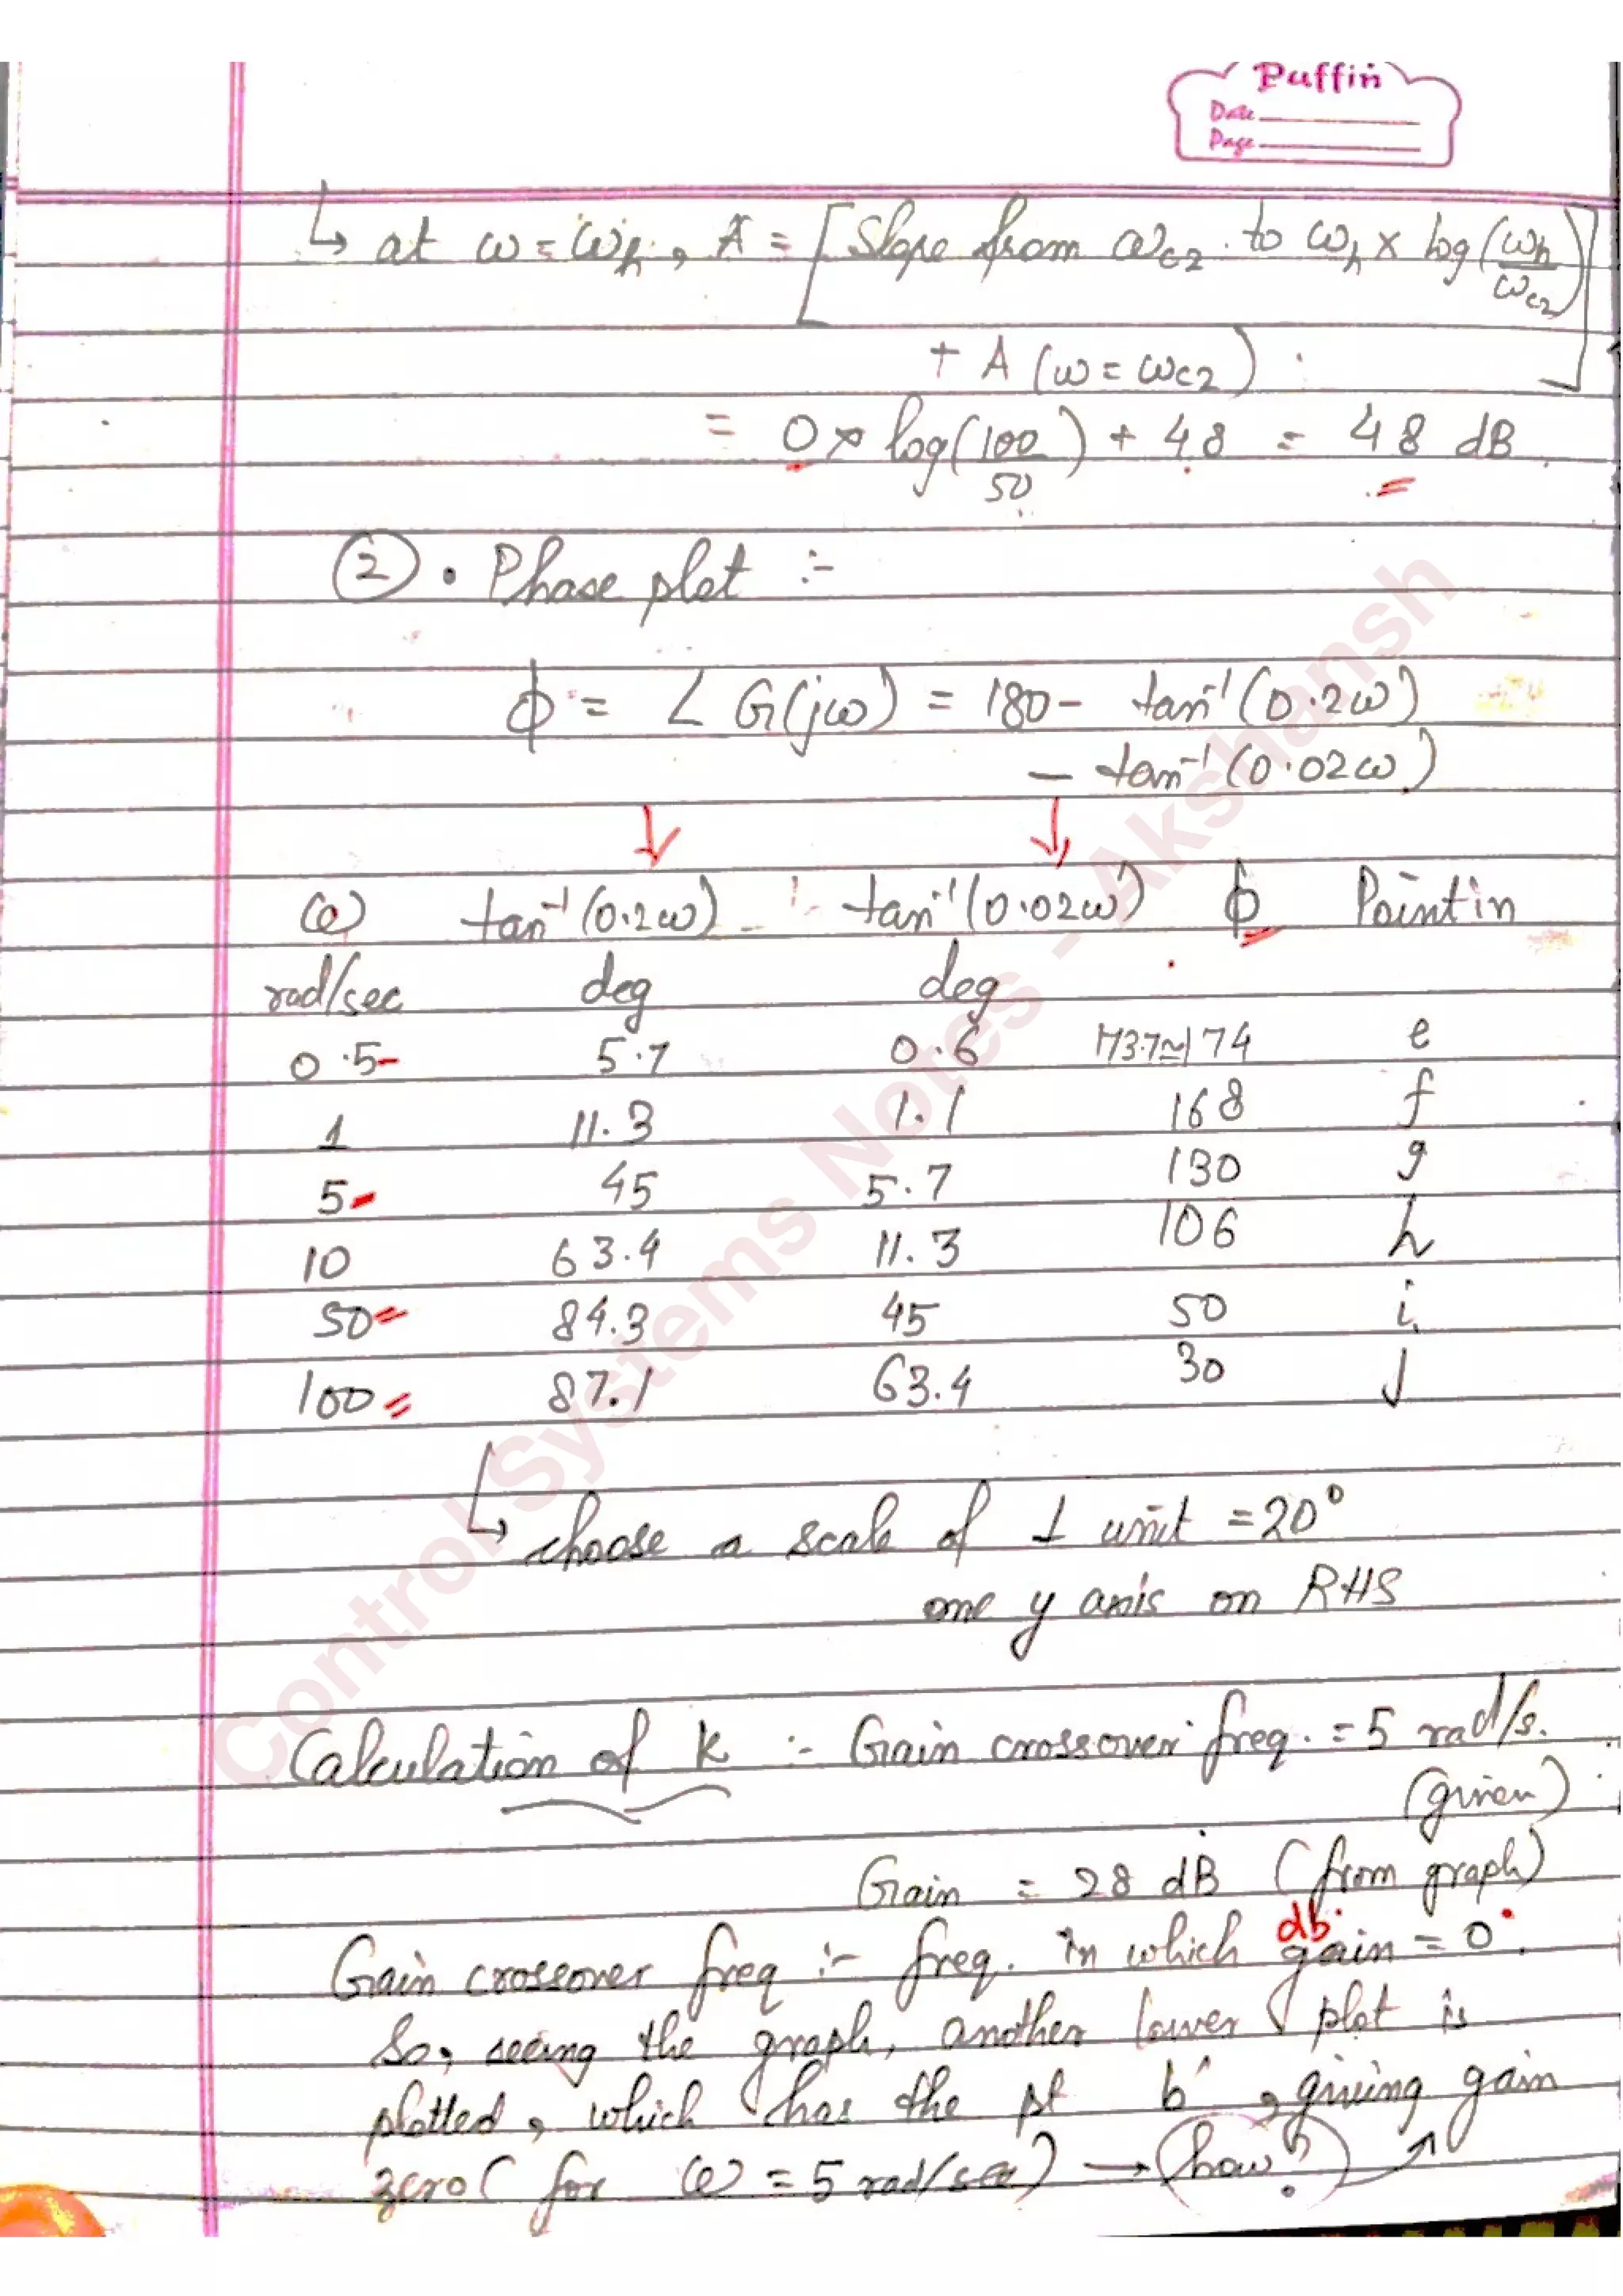 Puffin
Date
Page
↳ at ω = ωh, A = [Slope from ωc2 to ωh × log(ωh/ωc2)]
+ A (ω = ωc2)
= 0 × log(100/50) + 48 = 48 dB
② • Phase plot :-
ϕ = ∠ G(jω) = 180 - tan⁻¹(0.2ω)
- tan⁻¹(0.02ω)
ω tan⁻¹(0.2ω) tan⁻¹(0.02ω) ϕ Point in
rad/sec deg deg
0.5 5.7 0.6 173.7≃174 e
1 11.3 1.1 168 f
5 45 5.7 130 g
10 63.4 11.3 106 h
50 84.3 45 50 i
100 87.1 63.4 30 j
↳ choose a scale of 1 unit = 20°
one y axis on RHS
Calculation of k :- Gain crossover freq. = 5 rad/s.
(given)
Gain = 28 dB (from graph)
Gain crossover freq :- freq. in which db gain = 0.
So, seeing the graph, another lower plot is
plotted, which has the pt b', giving gain
zero (for ω = 5 rad/sec) → how?
Control Systems Notes - Akshansh